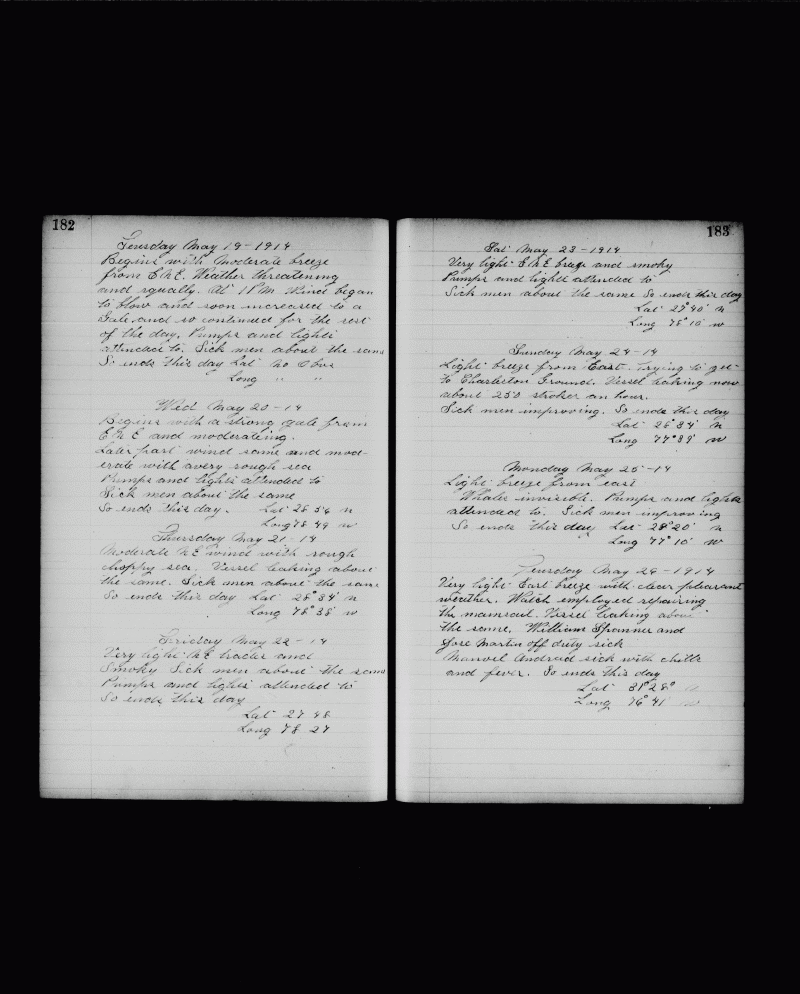 182
Teusday May 19-1914
Begins with Moderate breeze
from E N E. Weather threatening
and squally. At 1 P.M. Wind began
to blow and soon increased to a
Gale and so continued for the rest
of the day. Pumps and lights
attended to. Sick men about the same
So ends this day Lat No Obs
Long " "
Wed May 20-14
Begins with a strong gale from
E N E and moderating.
Later part wind same and mod-
erate with a very rough sea
Pumps and lights attended to
Sick men about the same
So ends this day. Lat 28 56 N
Long 78 49 W
Thursday May 21-14
Moderate N E wind with rough
choppy sea. Vessel leaking about
the same. Sick men about the same
So ends this day Lat 28° 34' N
Long 78° 38' W
Friday May 22-14
Very light N E trades and
Smoky Sick men about the same
Pumps and lights attended to
So ends this day
Lat 27 48
Long 78 27
183
Sat May 23-1914
Very light E N E breeze and smoky
Pumps and lights attended to
Sick men about the same So ends this day
Lat 27° 40' N
Long 78° 10' W
Sunday May 24-14
Light breeze from East. Trying to get
to Charleston Ground. Vessel leaking now
about 250 strokes an hour.
Sick men improving. So ends this day
Lat 28° 34' N
Long 77° 39' W
Monday May 25-14
Light breeze from east
Whales invisible. Pumps and lights
attended to. Sick men improving
So ends this day Lat 28° 20' N
Long 77° 10' W
Teusday May 26-1914
Very light East breeze with clear pleasant
weather. Watch employed repairing
the mainsail. Vessel leaking about
the same. William Spanner and
Jose Martin off duty sick
Manoel Andrad sick with chills
and fever. So ends this day
Lat 31° 28° N
Long 76° 41' W